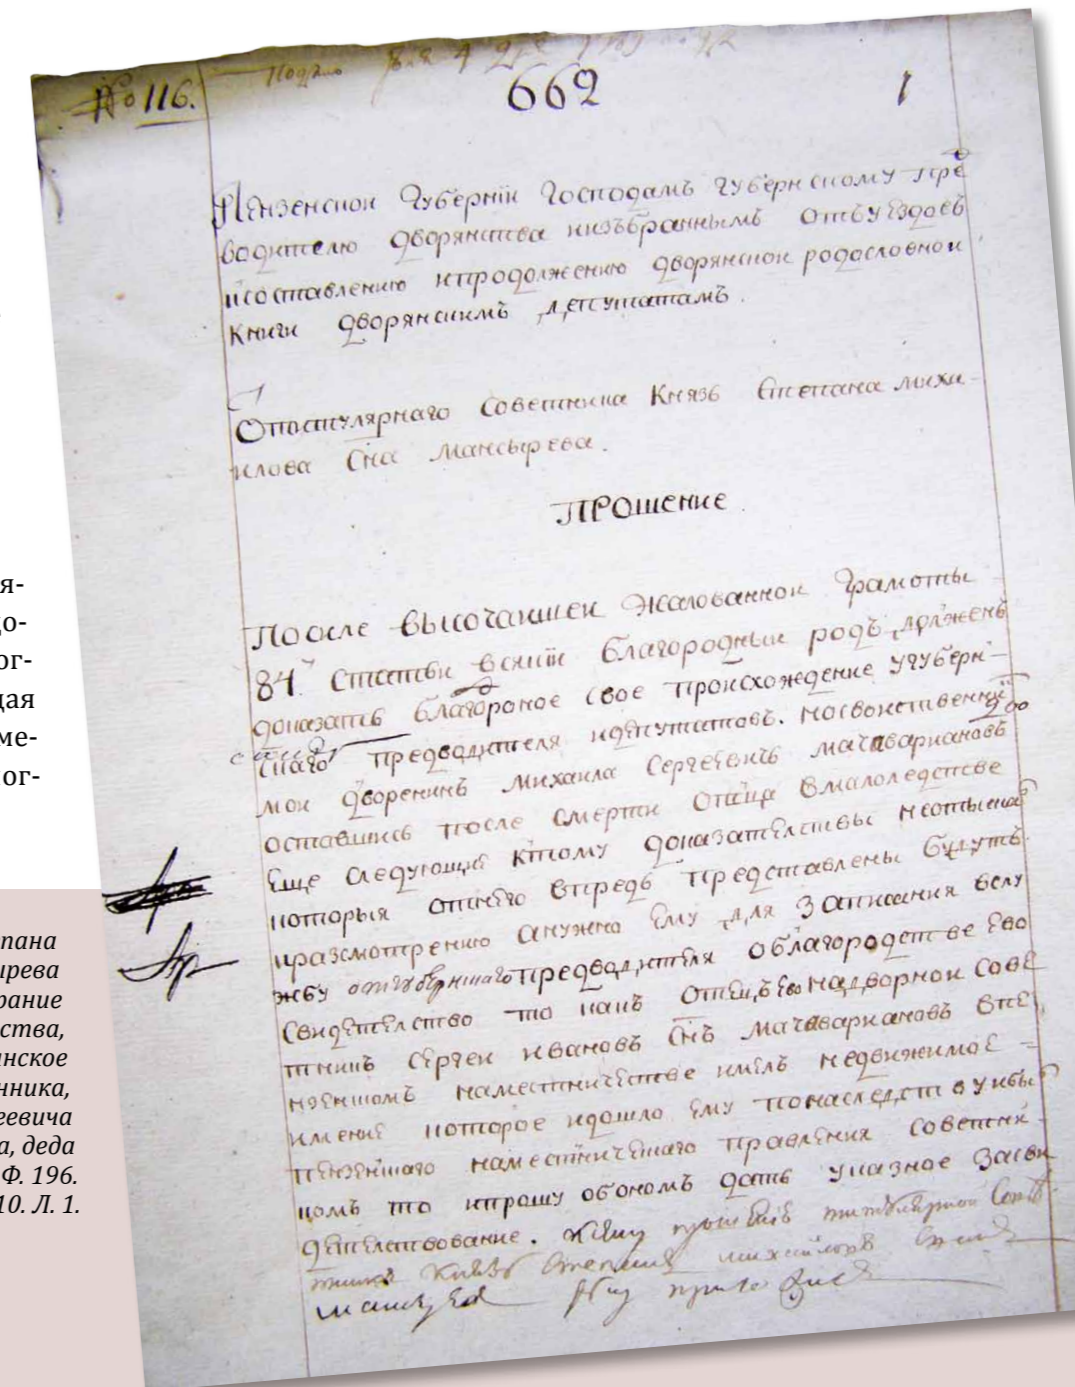 № 116.
662
1
Пензенской Губерніи Господамъ Губернскому пре
водителю дворянства иизъбраннымъ отъуездовъ
исоставлению ипродолжению дворянской родословной
Книги дворянскимъ депутатамъ.
Отостулярнаго Советника Князь Степана михаи-
илова Сна Мансырева.
Прошение
После высочаишеи Жалованнои Грамоты
84й Статьи Всякїи благородныи родъ должень
доказать благороное свое происхождение угуберн-
скаго предводителя идепутатовъ. Носвоиственникъ
мои дворенинъ михаила Сергеевичь мачаварианов
оставшись после смерти отца вмалоледстве
еще следующия ктому доказателствы неотыскал
которыя отнего впредь представлены будутъ.
кразсмотрению анужно ему для записания вслу
жбу отгубернскаго предводителя облагородстве ево
Свидетелство то какъ отецъ ево надворной Сове
тникъ Сергеи ивановъ Снъ мачаварианов впе
нзенскомъ наместничестве имелъ недвижимое
имение которое идошло ему понаследству ибыл
пензенскаго наместническаго правления советни-
комъ то ипрошу обономъ дать указное Засви
детелствование. Ксему прошению титулярной сове
тникъ Князь Степанъ михаиловъ сынъ
мансырев руку приложил
я-
до-
ог-
щая
ме-
ног-
пана
ырева
рание
ства,
нское
нника,
еевича
а, деда
Ф. 196.
10. Л. 1.